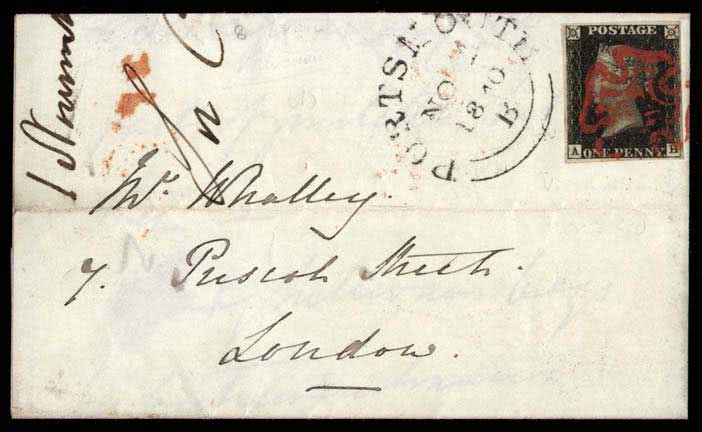 PORTSMOUTH
NO
1840
B
8
POSTAGE
A
ONE PENNY
Mr. Whalley.
7. Prescot Street.
London.